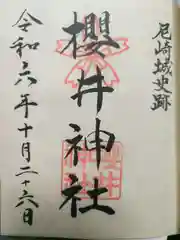 尼崎城史跡
櫻井神社
令和六年十月二十六日